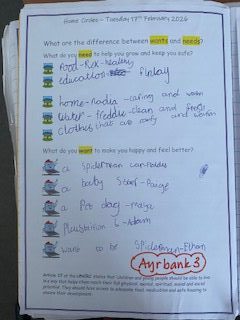 Home Circles – Tuesday 17th February 2026
What are the difference between wants and needs?
What do you need to help you grow and keep you safe?
Food - - healthy
education - Finlay
home - nadia - caring and warm
Water - Freddie - clean and fresh
Clothes that are comfy and warm
What do you want to make you happy and feel better?
a Spiderman can-
a baby sister - Paige
a Pet dog - maya
Playstation - Adam
want to be Spiderman -
Ayrbank 3
Article 27 of the UNCRC states that 'children and young people should be able to live
in a way that helps them reach their full physical, mental, spiritual, moral and social
potential. They should have access to adequate food, medication and safe housing to
ensure their development.